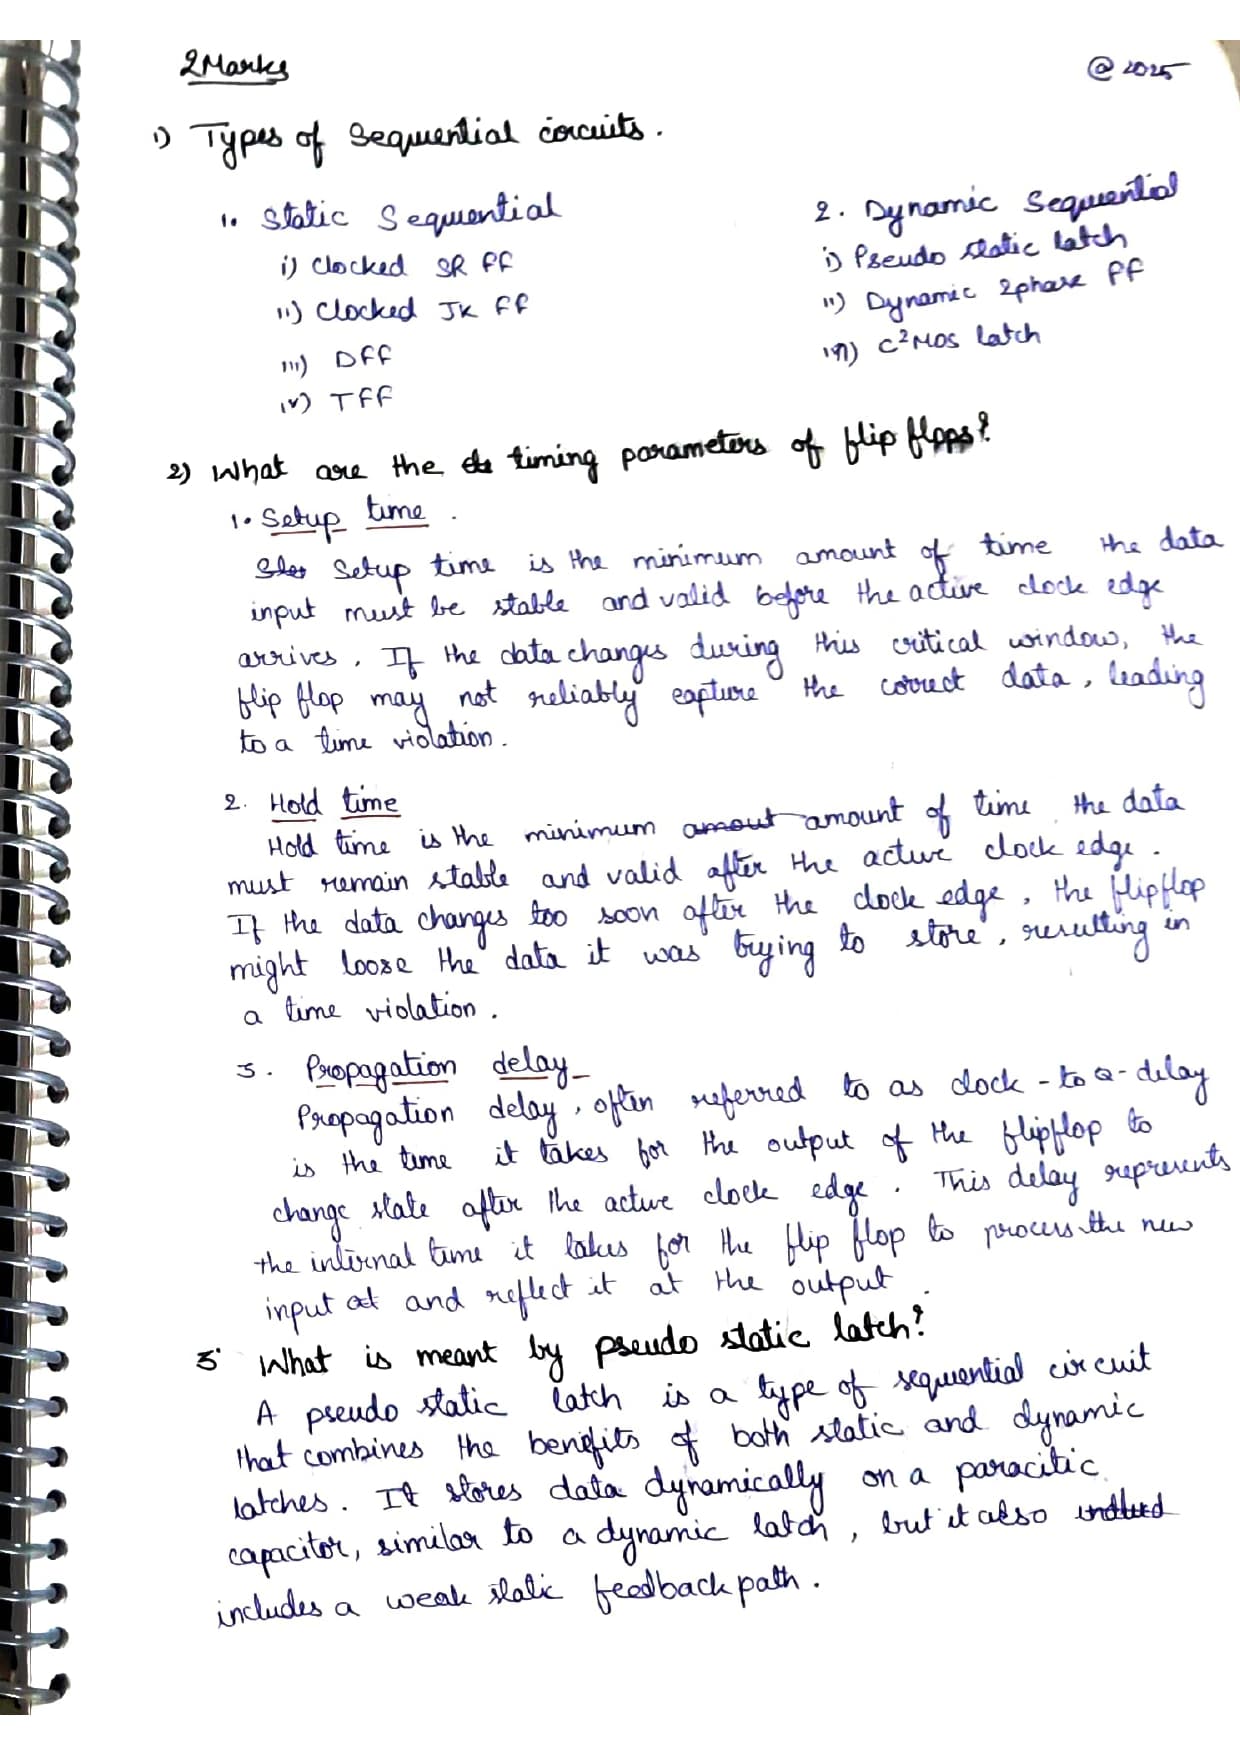 2Marks
@ 2025
1) Types of Sequential circuits.
1. Static Sequential
i) Clocked SR FF
ii) Clocked JK FF
iii) DFF
iv) TFF
2. Dynamic Sequential
i) Pseudo static latch
ii) Dynamic 2phase FF
iii) C²MOS latch
2) What are the timing parameters of flip flops?
1. Setup time.
Setup time is the minimum amount of time the data
input must be stable and valid before the active clock edge
arrives. If the data changes during this critical window, the
flip flop may not reliably capture the correct data, leading
to a time violation.
2. Hold time
Hold time is the minimum amout amount of time the data
must remain stable and valid after the active clock edge.
If the data changes too soon after the clock edge, the flipflop
might loose the data it was trying to store, resulting in
a time violation.
3. Propagation delay
Propagation delay, often referred to as clock-to Q-delay
is the time it takes for the output of the flipflop to
change state after the active clock edge. This delay represents
the internal time it takes for the flip flop to process the new
input at and reflect it at the output.
3 What is meant by pseudo static latch?
A pseudo static latch is a type of sequential circuit
that combines the benefits of both static and dynamic
latches. It stores data dynamically on a paracitic
capacitor, similar to a dynamic latch, but it also
includes a weak static feedback path.